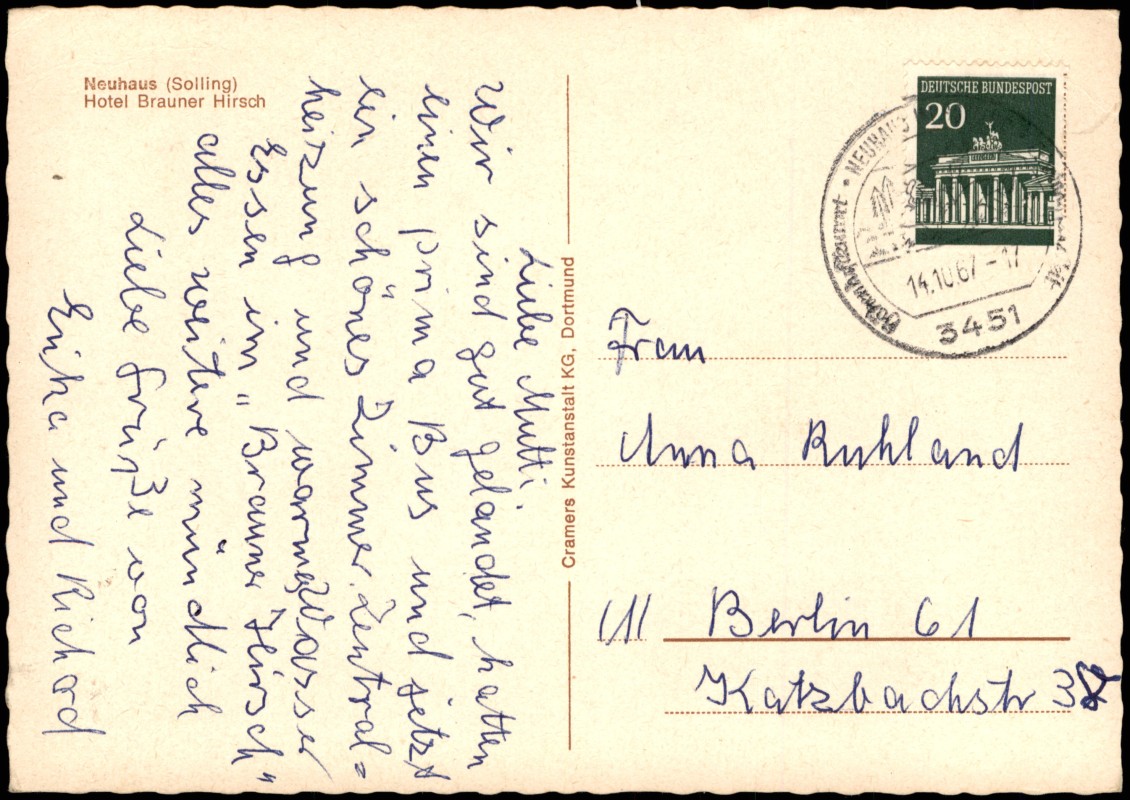 Neuhaus (Solling)
Hotel Brauner Hirsch
Liebe Mutti,
Wir sind gut gelandet, hatten
einen prima Bus und jetzt
ein schönes Zimmer. Zentral=
heizung und warmes Wasser
Essen im „Brauner Hirsch"
alles weitere mündlich
Liebe Grüße von
Erika und Richard
Cramers Kunstanstalt KG, Dortmund
DEUTSCHE BUNDESPOST
20
NEUHAUS
14.10.67-17
3451
Frau
Anna Ruhland
1 Berlin 61
Katzbachstr